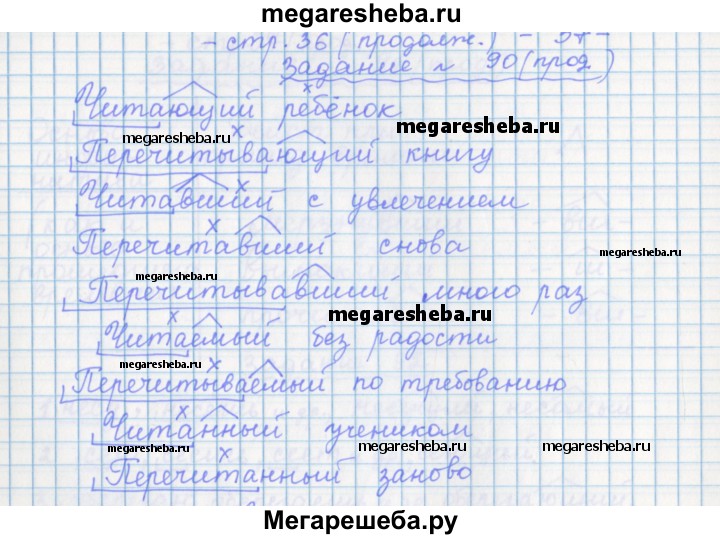 megaresheba.ru
- стр. 36 (продолж.) - 37 -
Задание № 90 (прод)
Читающий ребёнок
megaresheba.ru
megaresheba.ru
Перечитывающий книгу
megaresheba.ru
Читавший с увлечением
Перечитавший снова
megaresheba.ru
megaresheba.ru
Перечитывавший много раз
megaresheba.ru
Читаемый без радости
megaresheba.ru
Перечитываемый по требованию
Читанный учеником
megaresheba.ru
megaresheba.ru
megaresheba.ru
Перечитанный заново
megaresheba.ru
Мегарешеба.ру